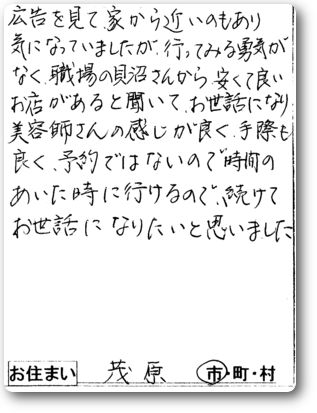 広告を見て、家から近いのもあり
気になっていましたが、行ってみる勇気が
なく、職場の貝沼さんから、安くて良い
お店があると聞いて、お世話になり
美容師さんの感じが良く、手際も
良く、予約ではないので時間の
あいた時に行けるので、続けて
お世話になりたいと思いました
お住まい 茂原 市・町・村